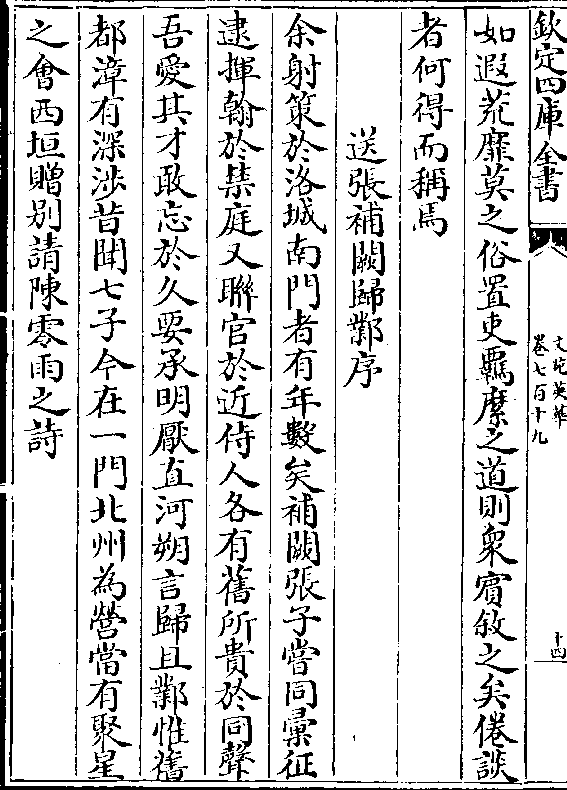 欽定四庫全書
文苑英華
卷七百十九
十四
如遐荒靡莫之俗置吏羈縻之道則衆賓敘之矣倦談
者何得而稱焉
送張補闕歸鄴序
余射策於洛城南門者有年數矣補闕張子嘗同彙征
逮揮翰於禁庭又聯官於近侍人各有舊所貴於同聲
吾愛其才敢忘於久要承明厭直河朔言歸且鄴惟舊
都漳有深涉昔聞七子今在一門北州為營當有聚星
之會西垣贈別請陳零雨之詩